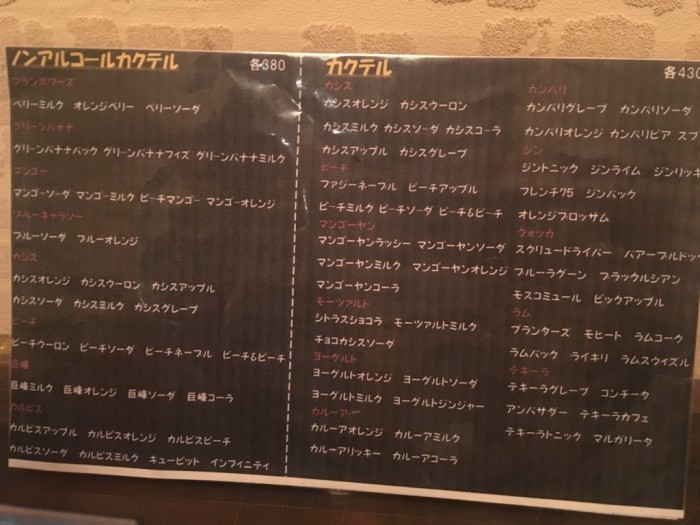 ノンアルコールカクテル 各380
フランボワーズ
ベリーミルク オレンジベリー ベリーソーダ
グリーンバナナ
グリーンバナナバック グリーンバナナフィズ グリーンバナナミルク
マンゴー
マンゴーソーダ マンゴーミルク ピーチマンゴー マンゴーオレンジ
ブルーキャラソー
ブルーソーダ ブルーオレンジ
カシス
カシスオレンジ カシスウーロン カシスアップル
カシスソーダ カシスミルク カシスグレープ
ピーチ
ピーチウーロン ピーチソーダ ピーチネーブル ピーチ&ピーチ
巨峰
巨峰ミルク 巨峰オレンジ 巨峰ソーダ 巨峰コーラ
カルピス
カルピスアップル カルピスオレンジ カルピスピーチ
カルピスソーダ カルピスミルク キューピット インフィニティ
カクテル 各430
カシス
カシスオレンジ カシスウーロン
カシスミルク カシスソーダ カシスコーラ
カシスアップル カシスグレープ
ピーチ
ファジーネーブル ピーチアップル
ピーチミルク ピーチソーダ ピーチ&ピーチ
マンゴーヤン
マンゴーヤンラッシー マンゴーヤンソーダ
マンゴーヤンミルク マンゴーヤンオレンジ
マンゴーヤンコーラ
モーツァルト
シトラスショコラ モーツァルトミルク
チョコカシスソーダ
ヨーグルト
ヨーグルトオレンジ ヨーグルトソーダ
ヨーグルトミルク ヨーグルトジンジャー
カルーアー
カルーアオレンジ カルーアミルク
カルーアリッキー カルーアコーラ
カンパリ
カンパリグレープ カンパリソーダ
カンパリオレンジ カンパリビア スプ
ジン
ジントニック ジンライム ジンリッキ
フレンチ75 ジンバック
オレンジブロッサム
ウォッカ
スクリュードライバー バアーブルドッ
ブルーラグーン ブラックルシアン
モスコミュール ビックアップル
ラム
プランターズ モヒート ラムコーク
ラムバック ライキリ ラムスウィズル
テキーラ
テキーラグレープ コンチータ
アンバサダー テキーラカフェ
テキーラトニック マルガリータ